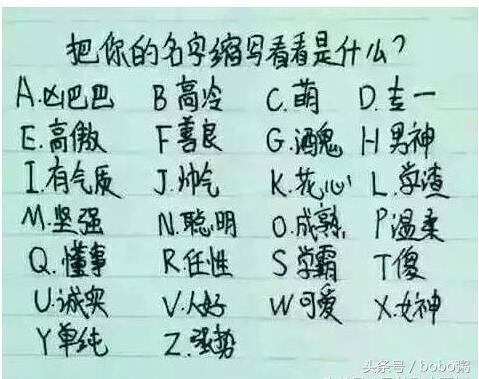 把你的名字缩写看看是什么?
A.凶巴巴 B高冷 C.萌 D.专一
E.高傲 F善良 G.酒鬼 H男神
I.有气质 J.帅气 K.花心 L.学渣
M.坚强 N.聪明 O.成熟 P温柔
Q.懂事 R.任性 S学霸 T傻
U.诚实 V.人好 W可爱 X.女神
Y单纯 Z.强势
头条号 / bobo粥